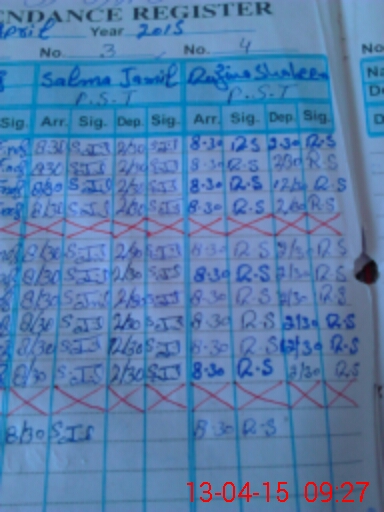 NDANCE REGISTER
April Year 2015
No. 3 No. 4 No
Salma Jamil Razina Shaheen Na
P.S.T P.S.T De
Sig. Arr. Sig. Dep. Sig. Arr. Sig. Dep. Sig. D
8.30 SJS 2/30 SJS 8.30 R.S 2.30 R.S
8/30 SJS 2/30 SJS 8.30 R.S 2/30 R.S
8/30 SJS 2/30 SJS 8.30 R.S 12/30 R.S
8/30 SJS 2/30 SJS 8.30 R.S 2/30 R.S
8/30 SJS 2/30 SJS 8.30 R.S 2/30 R.S
8/30 SJS 2/30 SJS 8.30 R.S 2/30 R.S
8/30 SJS 2/30 SJS 8.30 R.S 2/30 R.S
8/30 SJS 2/30 SJS 8.30 R.S 2/30 R.S
8/30 SJS 12/30 SJS 8.30 R.S 12/30 R.S
8/30 SJS 2/30 SJS 8.30 R.S 2/30 R.S
8/30 SJS 8.30 R.S
13-04-15 09:27